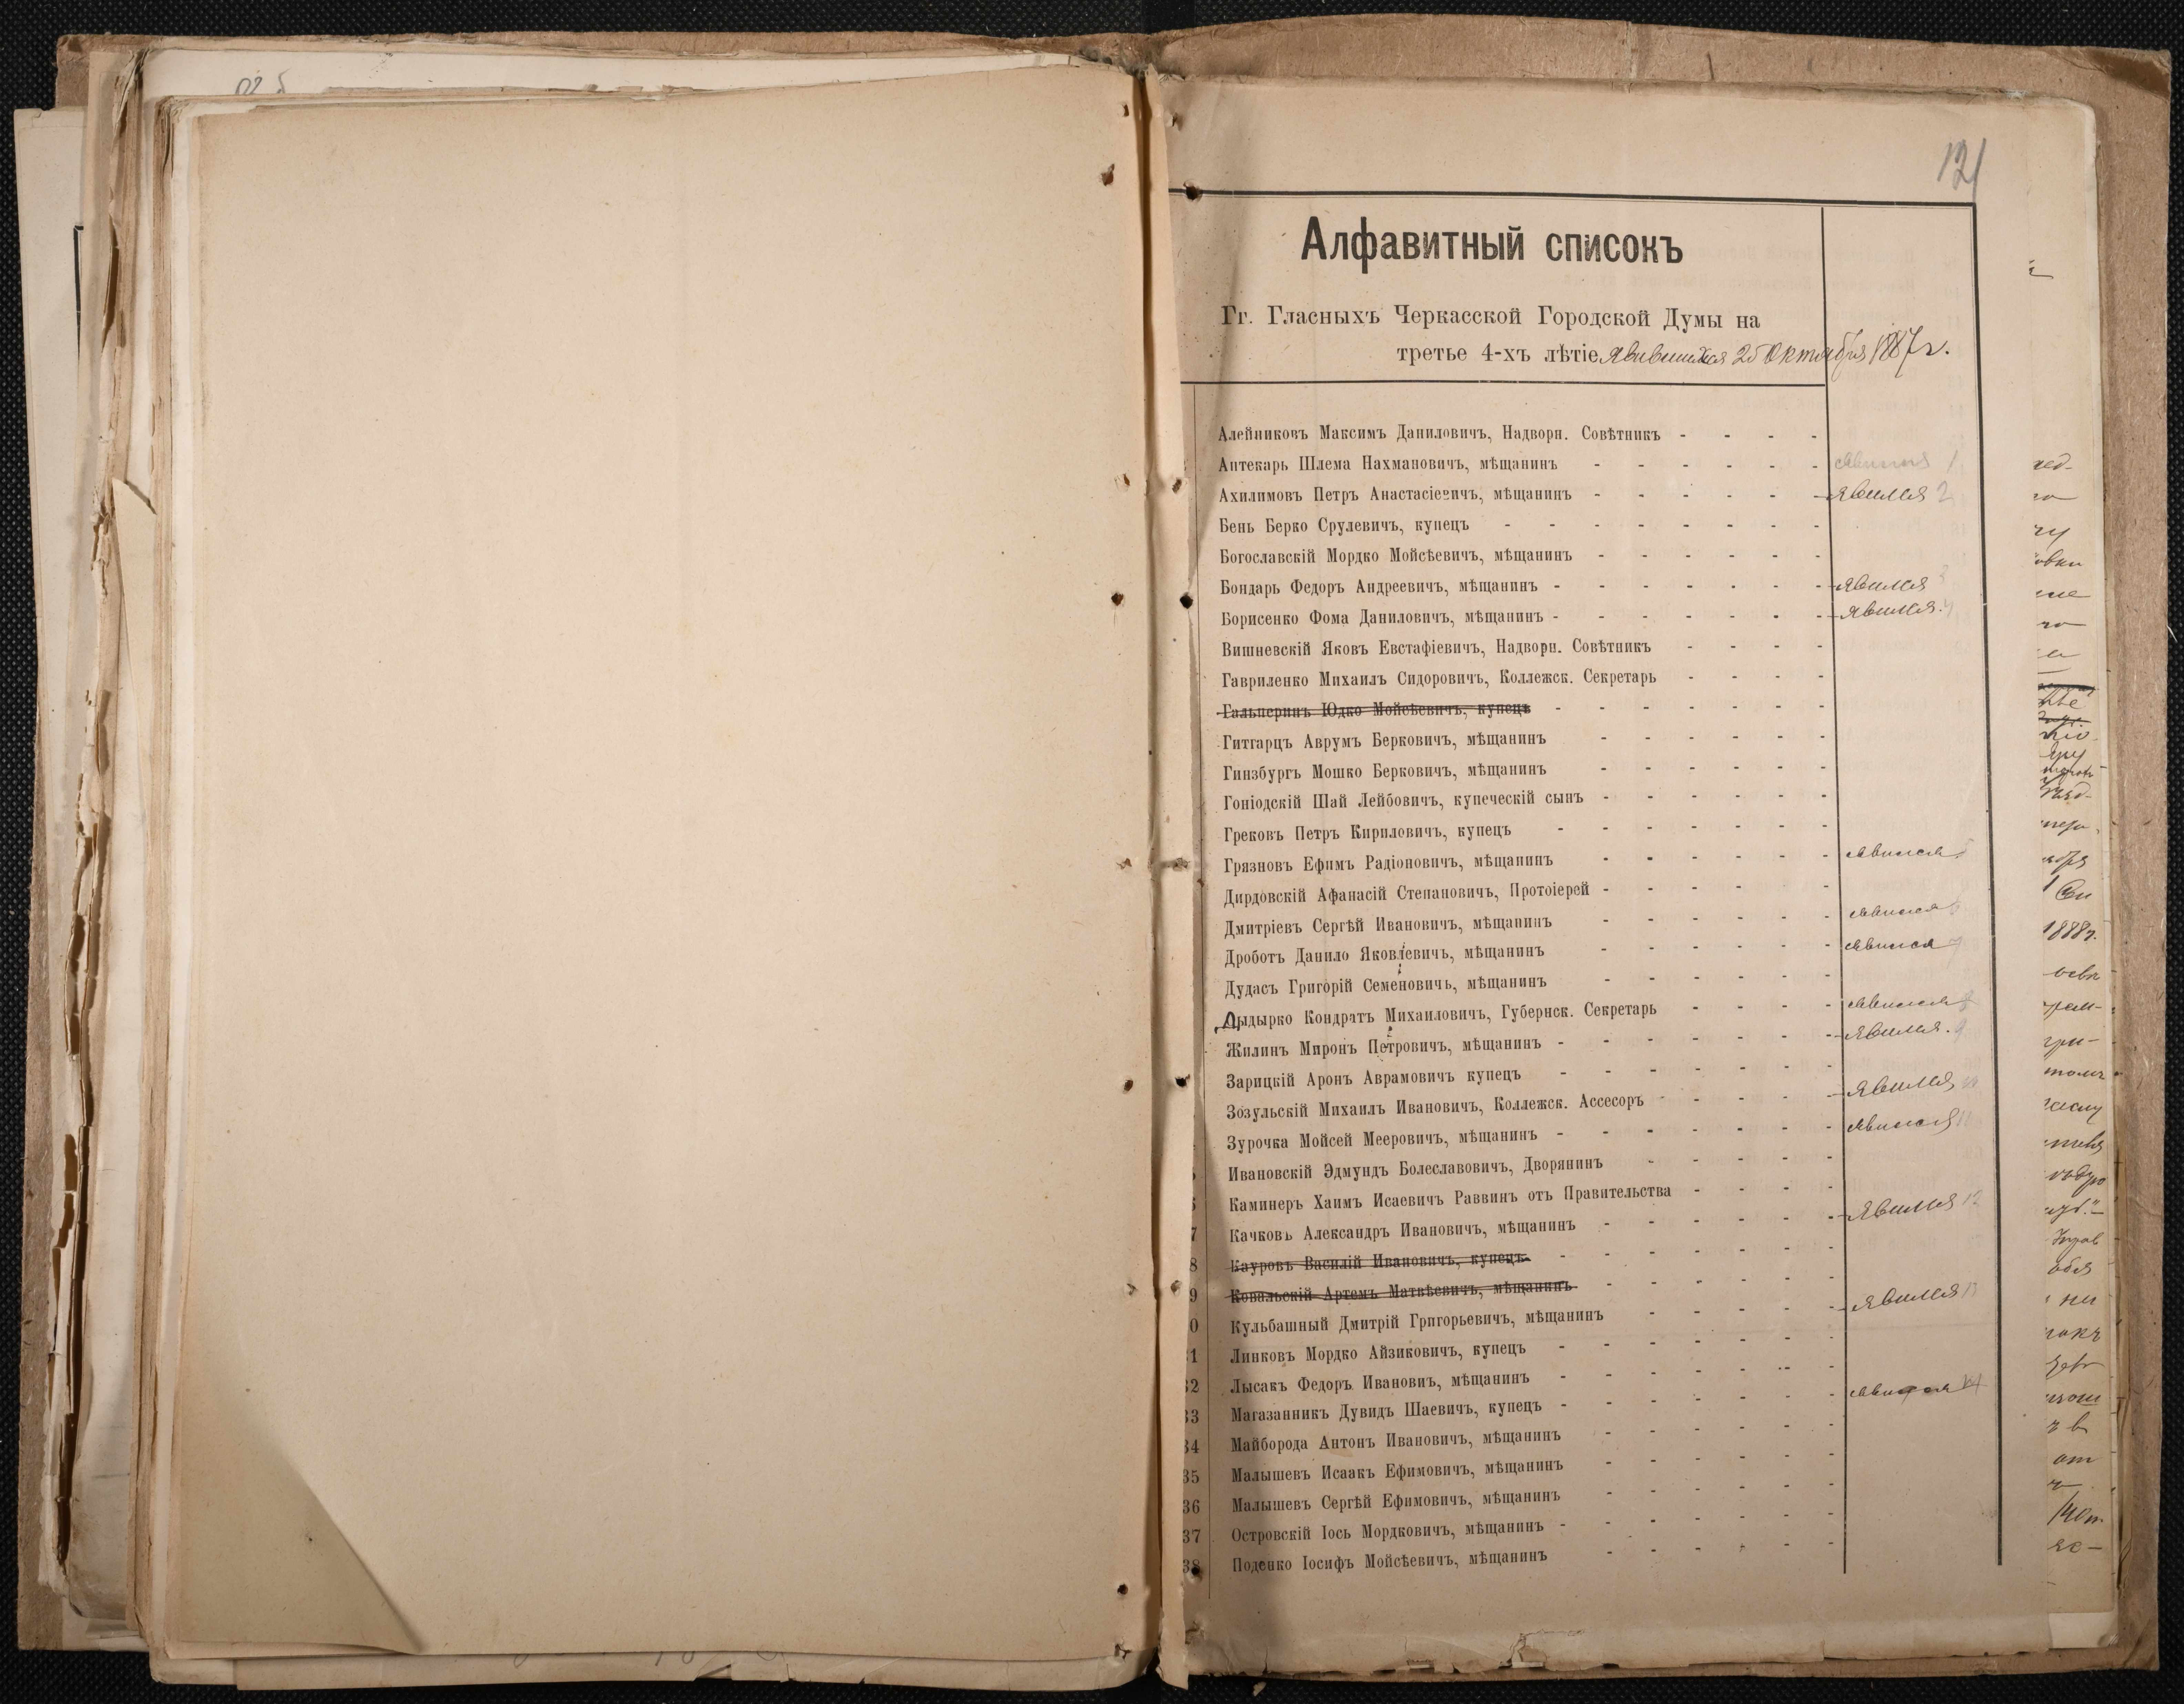 121
Алфавитный списокъ
Гг. Гласныхъ Черкасской Городской Думы на
третье 4-хъ лѣтіе явившихся 25 Октября 1887 г.
Алейниковъ Максимъ Даниловичъ, Надворн. Совѣтникъ - - - -
Аптекарь Шлема Нахмановичъ, мѣщанинъ - - - - - - явился 1
Ахилимовъ Петръ Анастасіевичъ, мѣщанинъ - - - - - - явился 2
Бень Берко Срулевичъ, купецъ - - - - - - - -
Богославскій Мордко Мойсѣевичъ, мѣщанинъ - - - - - -
Бондарь Федоръ Андреевичъ, мѣщанинъ - - - - - - - явился 3
Борисенко Фома Даниловичъ, мѣщанинъ - - - - - - - явился. 4
Вишневскій Яковъ Евстафіевичъ, Надворн. Совѣтникъ - - - -
Гавриленко Михаилъ Сидоровичъ, Коллежск. Секретарь - - - -
Гальперинъ Юдко Мойсѣевичъ, купецъ - - - - - - -
Гитгарцъ Аврумъ Берковичъ, мѣщанинъ - - - - - -
Гинзбургъ Мошко Берковичъ, мѣщанинъ - - - - - -
Гоніодскій Шай Лейбовичъ, купеческій сынъ - - - - - -
Грековъ Петръ Кириловичъ, купецъ - - - - - - -
Грязновъ Ефимъ Радіоновичъ, мѣщанинъ - - - - - - явился 5
Дирдовскій Афанасій Степановичъ, Протоіерей - - - - - -
Дмитріевъ Сергѣй Ивановичъ, мѣщанинъ - - - - - - явился 6
Дроботъ Данило Яковлевичъ, мѣщанинъ - - - - - - явился 7
Дудасъ Григорій Семеновичъ, мѣщанинъ - - - - - -
Дыдырко Кондратъ Михаиловичъ, Губернск. Секретарь - - - - явился 8
Жилинъ Миронъ Петровичъ, мѣщанинъ - - - - - - - явился. 9
Зарицкій Аронъ Аврамовичъ купецъ - - - - - - -
Зозульскій Михаилъ Ивановичъ, Коллежск. Ассесоръ - - - - - явился 10
Зурочка Мойсей Мееровичъ, мѣщанинъ - - - - - - - явился 11
Ивановскій Эдмундъ Болеславовичъ, Дворянинъ - - - - -
Каминеръ Хаимъ Исаевичъ Раввинъ отъ Правительства - - - -
7 Качковъ Александръ Ивановичъ, мѣщанинъ - - - - - - явился 12
8 Кауровъ Василій Ивановичъ, купецъ - - - - - - -
9 Ковальскій Артемъ Матвѣевичъ, мѣщанинъ - - - - - -
0 Кульбашный Дмитрій Григорьевичъ, мѣщанинъ - - - - - явился 13
1 Линковъ Мордко Айзиковичъ, купецъ - - - - - - -
32 Лысакъ Федоръ Ивановичъ, мѣщанинъ - - - - - - -
33 Магазанникъ Дувидъ Шаевичъ, купецъ - - - - - - - явился 14
34 Майборода Антонъ Ивановичъ, мѣщанинъ - - - - - -
35 Малышевъ Исаакъ Ефимовичъ, мѣщанинъ - - - - - -
36 Малышевъ Сергѣй Ефимовичъ, мѣщанинъ - - - - - -
37 Островскій Іось Мордковичъ, мѣщанинъ - - - - - - -
38 Поденко Іосифъ Мойсѣевичъ, мѣщанинъ - - - - - -
1888 г.